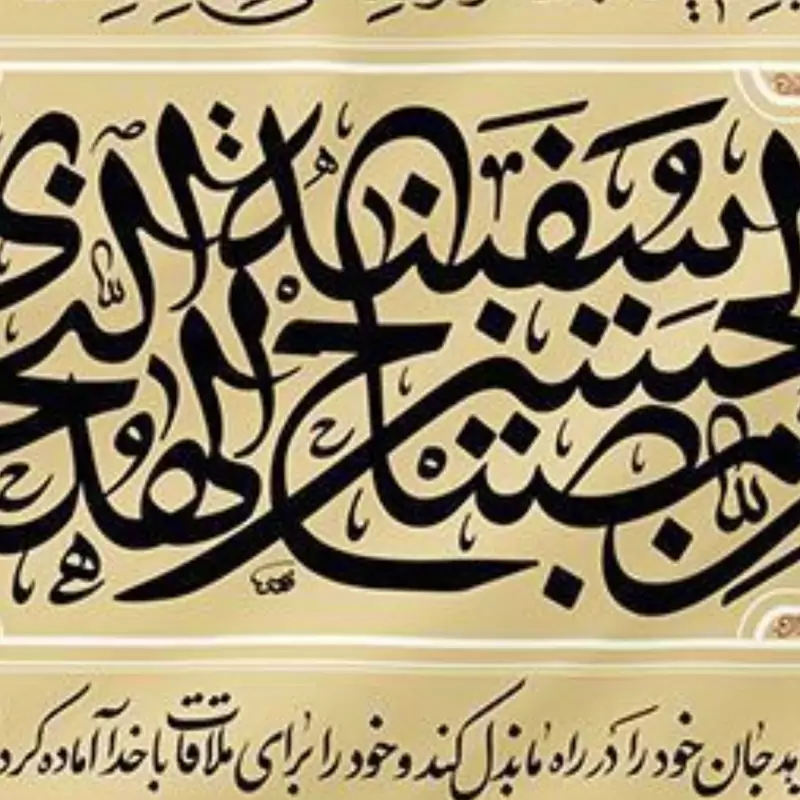 ان الحسین مصباح الهدی و سفینة النجاة
جان خود را در راه ما بذل کند و خود را برای ملاقات با خدا آماده کرد